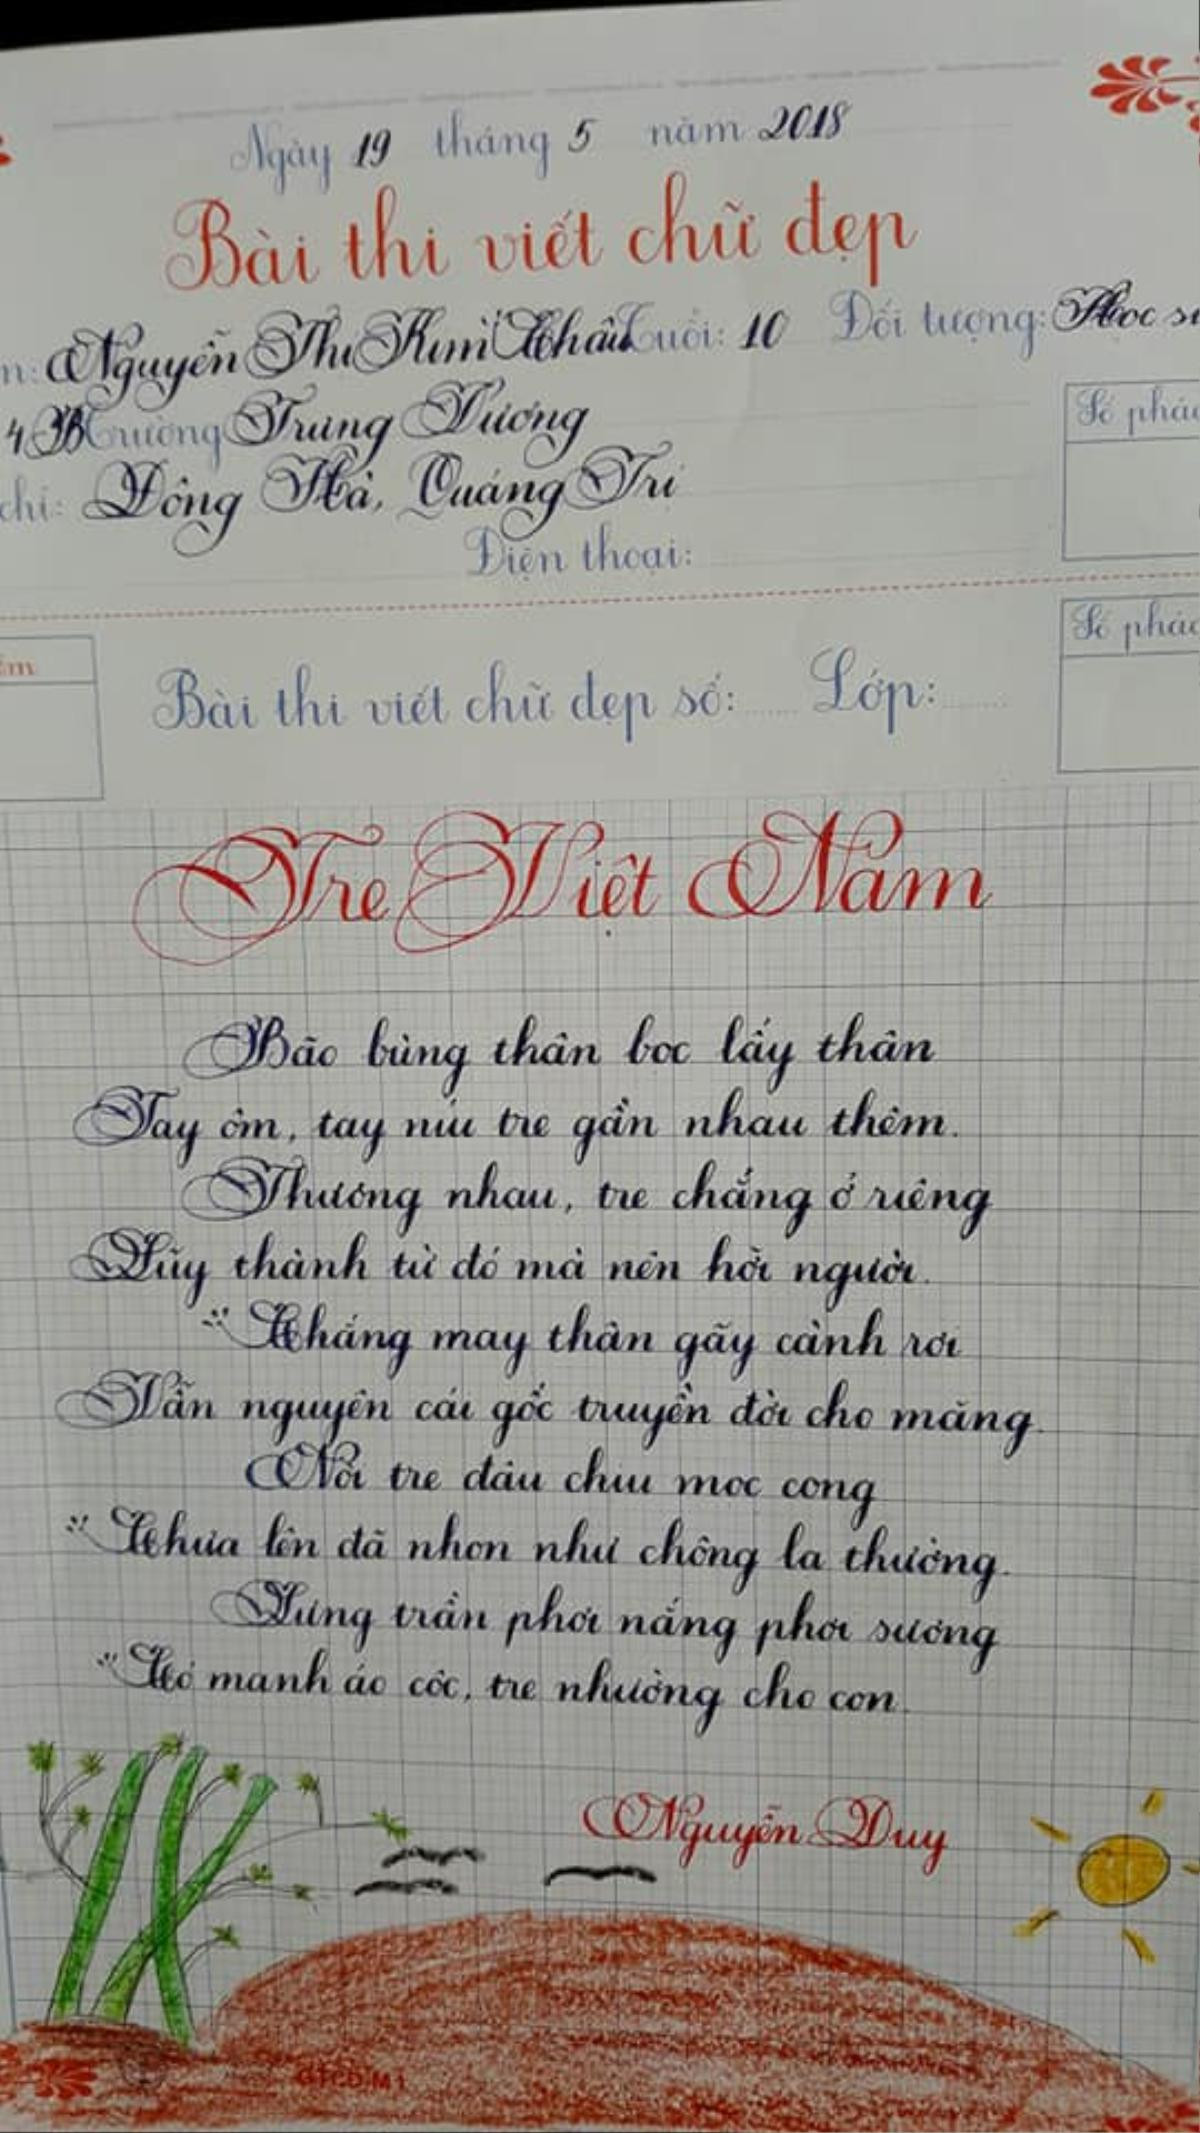 Ngày 19 tháng 5 năm 2018
Bài thi viết chữ đẹp
n: Nguyễn Thị Kim Châu Tuổi: 10 Đối tượng: Học si
4B Trường Trưng Vương
chỉ: Đông Hà, Quảng Trị
Số phác
Điện thoại:
Số phác
ểm
Bài thi viết chữ đẹp số: Lớp:
Tre Việt Nam
Bão bùng thân bọc lấy thân
Tay ôm, tay níu tre gần nhau thêm.
Thương nhau, tre chẳng ở riêng
Lũy thành từ đó mà nên hỡi người.
Chẳng may thân gãy cành rơi
Vẫn nguyên cái gốc truyền đời cho măng.
Nòi tre đâu chịu mọc cong
Chưa lên đã nhọn như chông lạ thường.
Lưng trần phơi nắng phơi sương
Có manh áo cộc, tre nhường cho con.
Nguyễn Duy
GTCD.M1